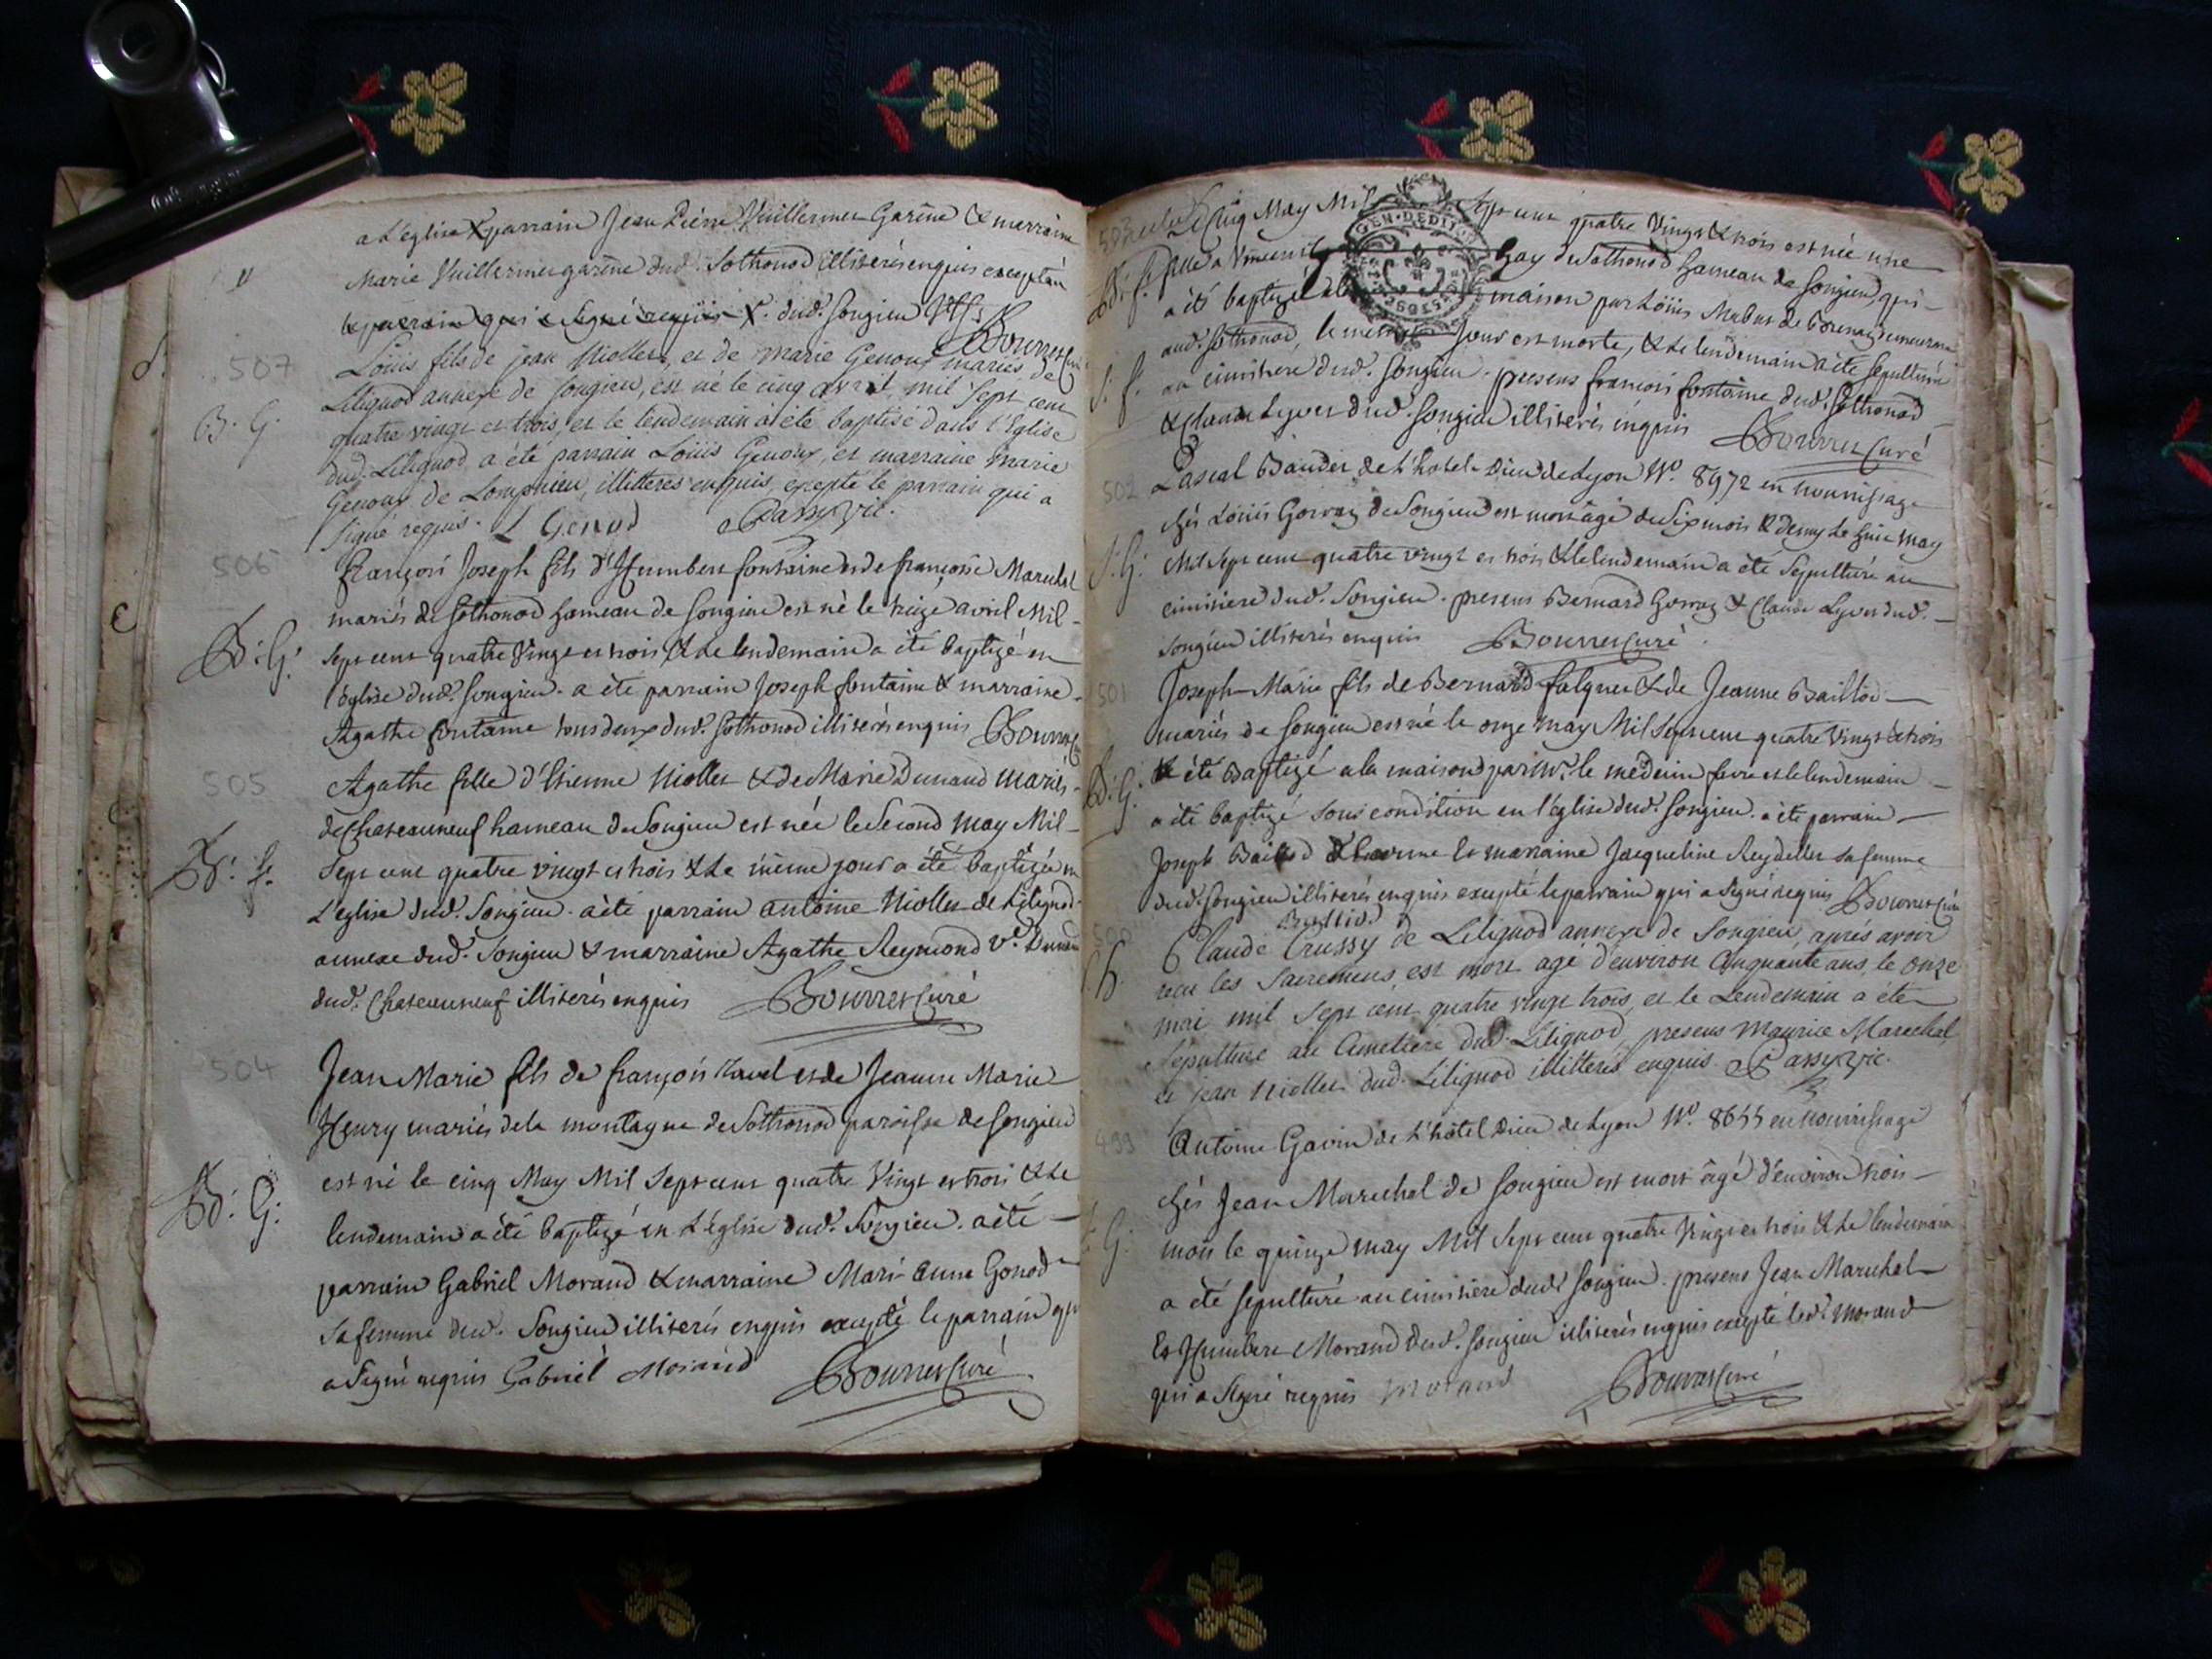 a L'eglise & parrain Jean Pierre Vuillermier Garine & marraine
Marie Vuillermier garine dud. Sothonod illiterés enquis excepté
le parrain qui a signé requis dud. Songieu
Bourret Curé
507
Louis fils de jean Niollet, et de marie Genoux mariés de
Lilignod annexe de Songieu, est né le cinq avril mil Sept cent
B. G.
quatre vingt et trois, et le lendemain a été baptisé dans l'Eglise
dud. Lilignod, a été parrain Louis Genoux, et marraine marie
Genoux de Lompnieu, illitteres enquis, excepté le parrain qui a
signé requis. L Genod Passy vic.
506
françois Joseph fils d'Humbert fontaine et de françoise Marechal
mariés de Sothonod hameau de Songieu est né le treize avril Mil
B. G.
Sept cent quatre Vingt et trois, & le lendemain a été baptizé en
l'église dud. Songieu. a été parrain Joseph fontaine & marraine
Agathe fontaine tous deux dud. Sothonod illiterés enquis Bourret
505
Agathe fille d'Etienne Niollet & de Marie Dunand mariés
de Chateauneuf hameau de Songieu est née le Second may Mil
B. f.
Sept cent quatre vingt et trois & le même jour a été baptizée en
L'eglise dud. Songieu. a été parrain antoine Niollet de Lilignod
annexe dud. Songieu & marraine Agathe Reymond ve. Dunand
dud. Chateauneuf illiterés enquis Bourret Curé
504
Jean Marie fils de françois et de Jeanne Marie
Henry mariés de la montagne de Sothonod paroisse de Songieu
B. G.
est né le cinq May Mil Sept cent quatre Vingt et trois & le
lendemain a été baptizé en L'église dud. Songieu. a été
parrain Gabriel Morand & marraine Marianne Gonod
Sa femme dud. Songieu illiterés enquis excepté le parrain qui
a Signé requis Gabriel Morand Bourret Curé
503
Le Cinq May Mil Sept cent quatre Vingt & trois est née une
B. f. fille a Vincent Gay de Sothonod hameau de Songieu, qui
GEN. DE DIJON
a été baptizée a la maison par Louis
aud. Sothonod, le même Jour est morte, & le lendemain a été sepulturée
S. f.
au cimitiere dud. Songieu. presens françois fontaine dud. Sothonod
& Claude Lyvet dud. Songieu illiterés enquis Bourret Curé
502
Pascal Baudet de L'hotel Dieu de Lyon No. 8972 en nourrissage
chés Louis Gorraz de Songieu est mort agé de Six mois & demy le huit may
S. G.
Mil Sept cent quatre vingt et trois & le lendemain a été Sepulturé au
cimitiere dud. Songieu. presens Bernard Gorraz & Claude Lyvet dud.
Songieu illiterés enquis Bourret Curé
501
Joseph Marie fils de Bernard falquet & de Jeanne Baillod
mariés de Songieu est né le onze may Mil Sept cent quatre Vingt & trois
B. G.
a été Baptizé a la maison par Mr. le medecin favre et le lendemain
a été baptizé sous condition en l'église dud. Songieu. a été parrain
Joseph Baillod & marraine Jacqueline Reydellet sa femme
dud. Songieu illiterés enquis excepté le parrain qui a Signé requis Bourret Curé
Baillod
500
Claude Crussy de Lilignod annexe de Songieu, aprés avoir
S. h.
reçu les Sacremens, est mort agé d'environ Cinquante ans, le onze
mai mil Sept cent quatre vingt trois, et le Lendemain a été
Sepulturé au Cimetiere dud. Lilignod, presens Maurice Marechal
et jean Niollet dud. Lilignod illitterés enquis. Passy vic.
499
Antoine Gavin de L'hôtel Dieu de Lyon No. 8655 en nourrissage
chés Jean Marechal de Songieu est mort âgé d'environ trois
S. G.
mois le quinze may Mil Sept cent quatre Vingt et trois & le lendemain
a été sepulturé au cimitiere dud. Songieu. presens Jean Marechal
et Humbert Morand dud. Songieu illiterés enquis excepté led. morand
qui a Signé requis Morand Bourret Curé